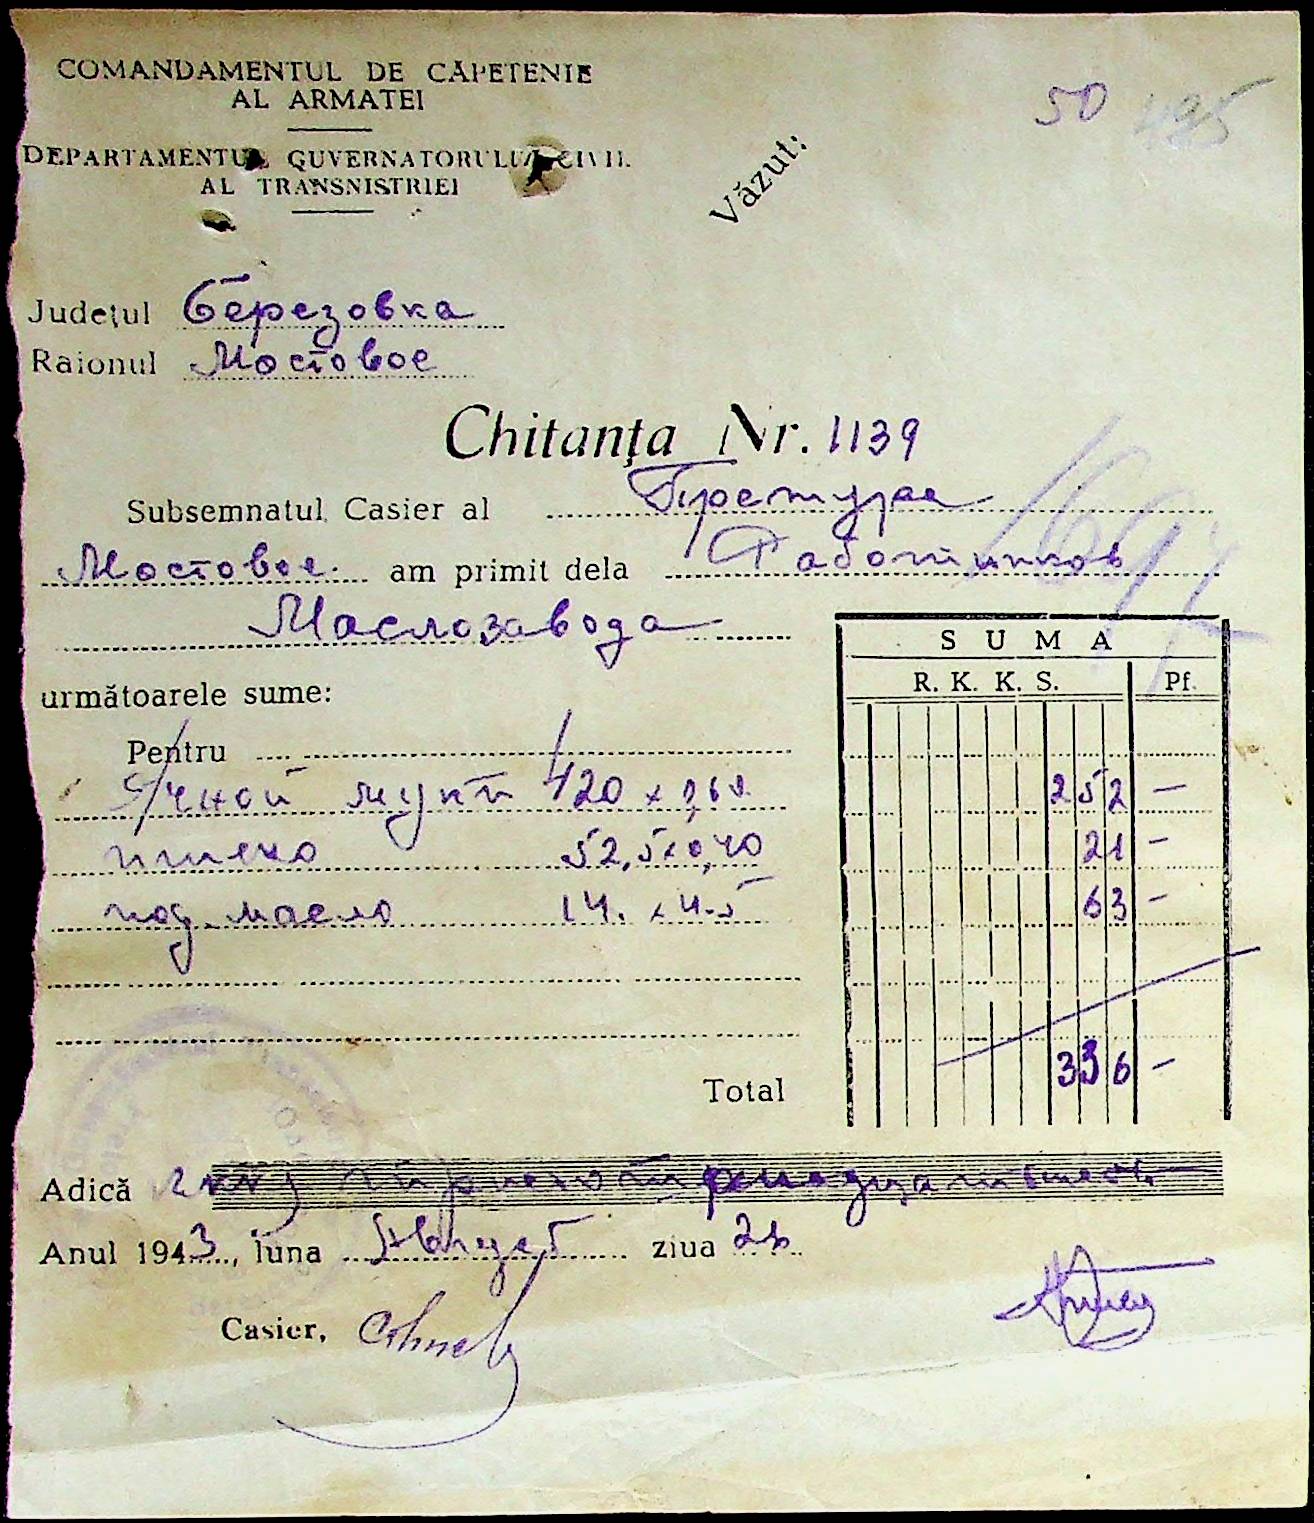 COMANDAMENTUL DE CĂPETENIE
AL ARMATEI
50 495
DEPARTAMENTUL GUVERNATORULUI CIVIL
AL TRANSNISTRIEI
Văzut:
Județul Березовка
Raionul Мостовое
Chitanța Nr. 1139
Subsemnatul Casier al Претура
Мостовое am primit dela Работников
Маслозавода
SUMA
R. K. K. S. Pf.
următoarele sume:
Pentru
Ячной муки 420 x 0,60 252 —
пшено 52,5 x 0,40 21 —
под. масло 14. x 4-5 63 —
Total 336 —
Adică
Anul 1943, luna Август ziua
Casier,